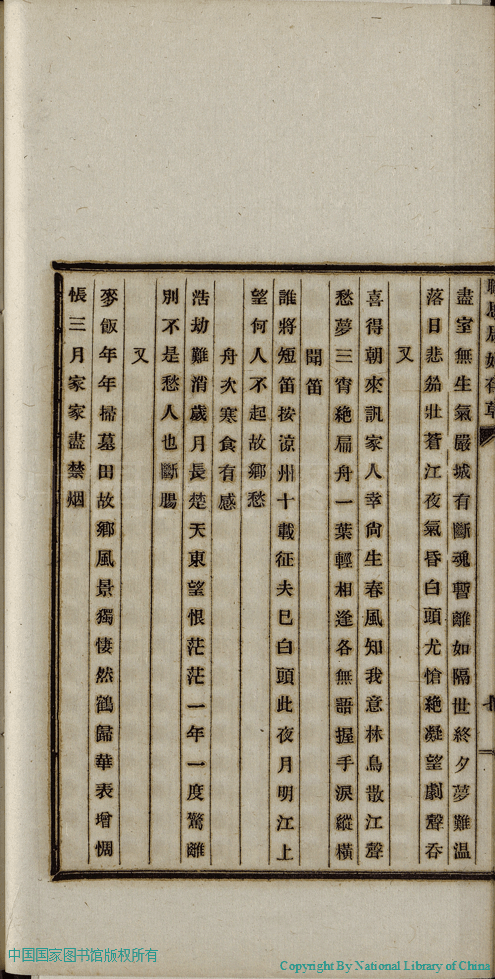 盡室無生氣嚴城有斷魂暫離如隔世終夕夢難温
落日悲笳壯蒼江夜氣昏白頭尤愴絶凝望劇聲吞
又
喜得朝來訊家人幸尙生春風知我意林鳥散江聲
愁夢三宵絶扁舟一葉輕相逢各無語握手淚縱橫
聞笛
誰將短笛按涼州十載征夫巳白頭此夜月明江上
望何人不起故鄉愁
舟次寒食有感
浩劫難消歲月長楚天東望恨茫茫一年一度驚離
別不是愁人也斷腸
又
麥飯年年掃墓田故鄉風景獨悽然鶴歸華表增惆
悵三月家家盡禁烟
中国国家图书馆版权所有
Copyright By National Library of China